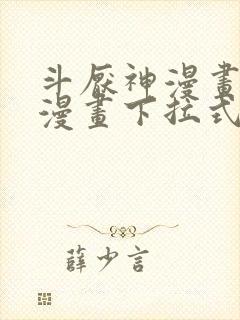 斗厭神漫畫
漫畫下拉式
薛少言